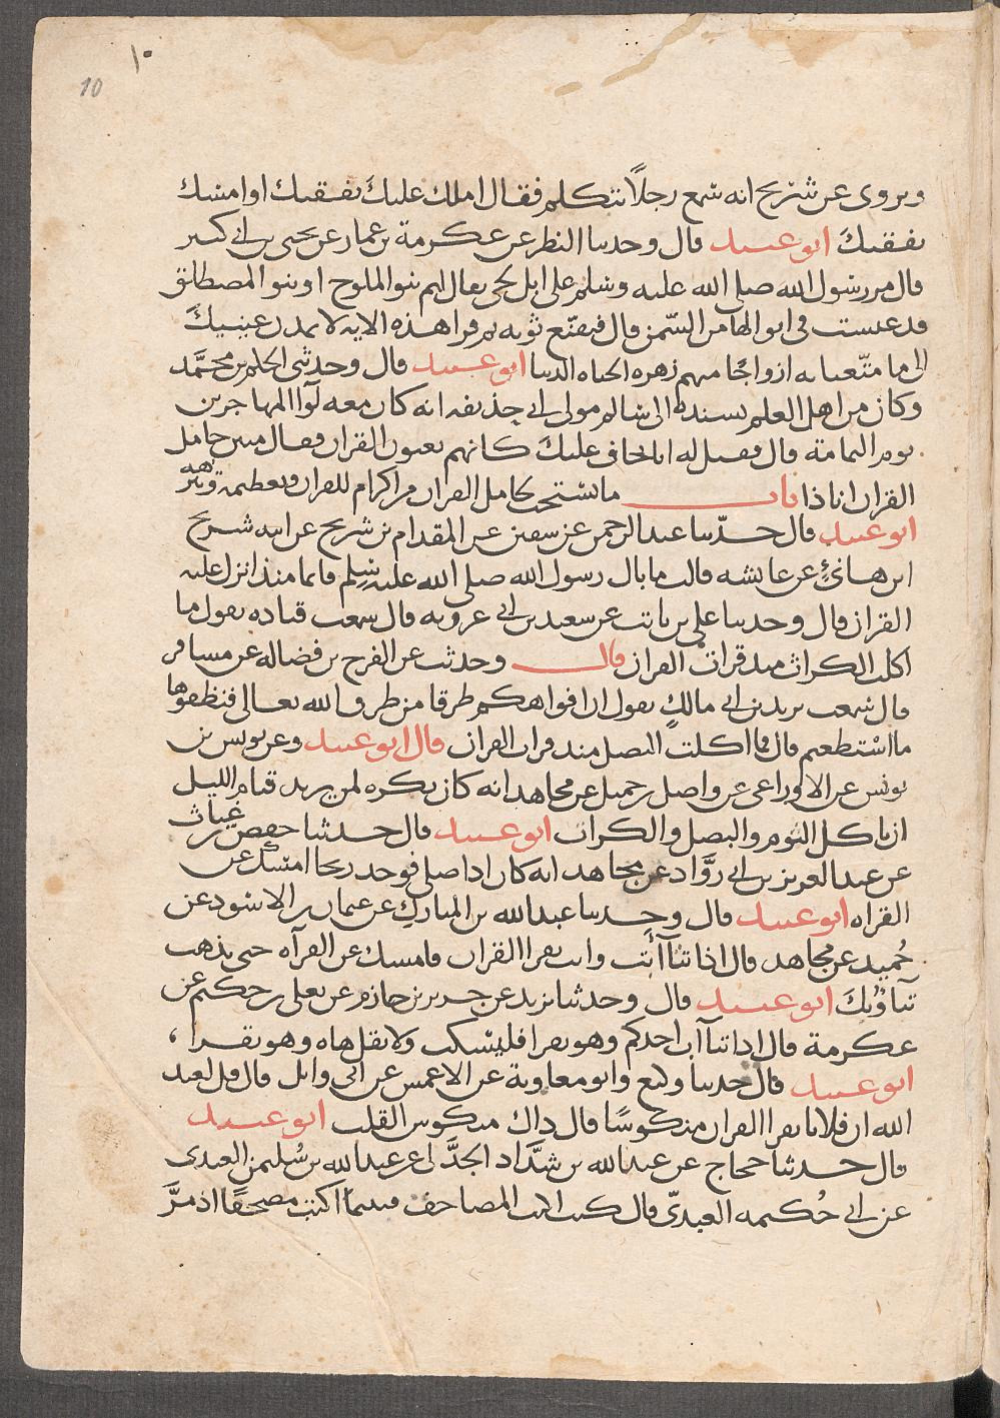 ١٠
10
ويروى عن شريح انه سمع رجلاً يتكلم فقال املك عليك نفقتك او امسك
نفقتك ابو عبيد قال وحدثنا النظر عن عكرمة بن عمار عن يحيى بن ابي كثير
قال مر رسول الله صلى الله عليه وسلم على ابل لحي يقال لهم بنو الملوح او بنو المصطلق
قد عبست في ابوالها من السمن قال فتقنّع ثوبه ثم قرا هذه الاية لا تمدن عينيك
الى ما متّعنا به ازواجًا منهم زهرة الحياة الدنيا ابو عبيد قال وحدثني الحلم بن محمَّد
وكان من اهل العلم يسنده الى سالم مولى ابي حذيفه انه كان معه لوآ المهاجرين
يوم اليمامة قال فقيل له انا نخاف عليك كانهم يعنون القران فقال بيس حامل
القران انا اذا باب ما يستحب لحامل القران من اكرام للقران وتعظيمه وتنزيهه
ابو عبيد قال حدّثنا عبد الرحمن عن سفين عن المقدام بن شريح عن ابيه شريح
ابن هانئٍ عن عايشه قالت ما بال رسول الله صلى الله عليه وسلم قايما منذ انزل عليه
القران قال وحدثنا علي بن ثابت عن سعيد بن ابي عروبه قال سمعت قتاده يقول ما
اكلت الكراث منذ قرات القران قال وحدثت عن الفرج بن فضاله عن مسافر
قال سمعت يزيد بن ابي مالكٍ يقول ان افواهكم طرقا من طرق الله تعالى فنظفوها
ما استطعتم قال فما اكلت البصل منذ قرات القران قال ابو عبيد وعن يونس بن
يونس عن الاوزاعي عن واصل بن جميل عن مجاهد انه كان يكره لمن يريد قيام الليل
ان ياكل الثوم والبصل والكراث ابو عبيد قال حدثنا حفص بن غياث
عن عبد العزيز بن ابي روَّاد عن مجاهد انه كان اذا صلى فوجد ريحا امسك عن
القراه ابو عبيد قال وحدثنا عبد الله بن المبارك عن عثمان بن الاسود عن
حُميد عن مجاهد قال اذا تثآأبت وانت تقرا القران فامسك عن القرآه حتى يذهب
تثاؤبك ابو عبيد قال وحدثنا يزيد عن جرير بن حازم عن يعلى بن حكيم عن
عكرمة قال اذا تثآب احدكم وهو يقرا فليسكت ولا يقل هاه وهو يقرا ،
ابو عبيد قال حدثنا وكيع وابو معاوية عن الاعمش عن ابي وايل قال قيل لعبد
الله ان فلانا يقرا القران منكوسًا قال ذاك منكوس القلب ابو عبيد
قال حدثنا حجاج عن عبد الله بن شدَّاد الجدَّلي عن عبد الله بن سُليمن العبدي
عن ابي حُكيمه العبديّ قال كنت اكتب المصاحف فبينما اكتب مصحفًا اذ مرَّ